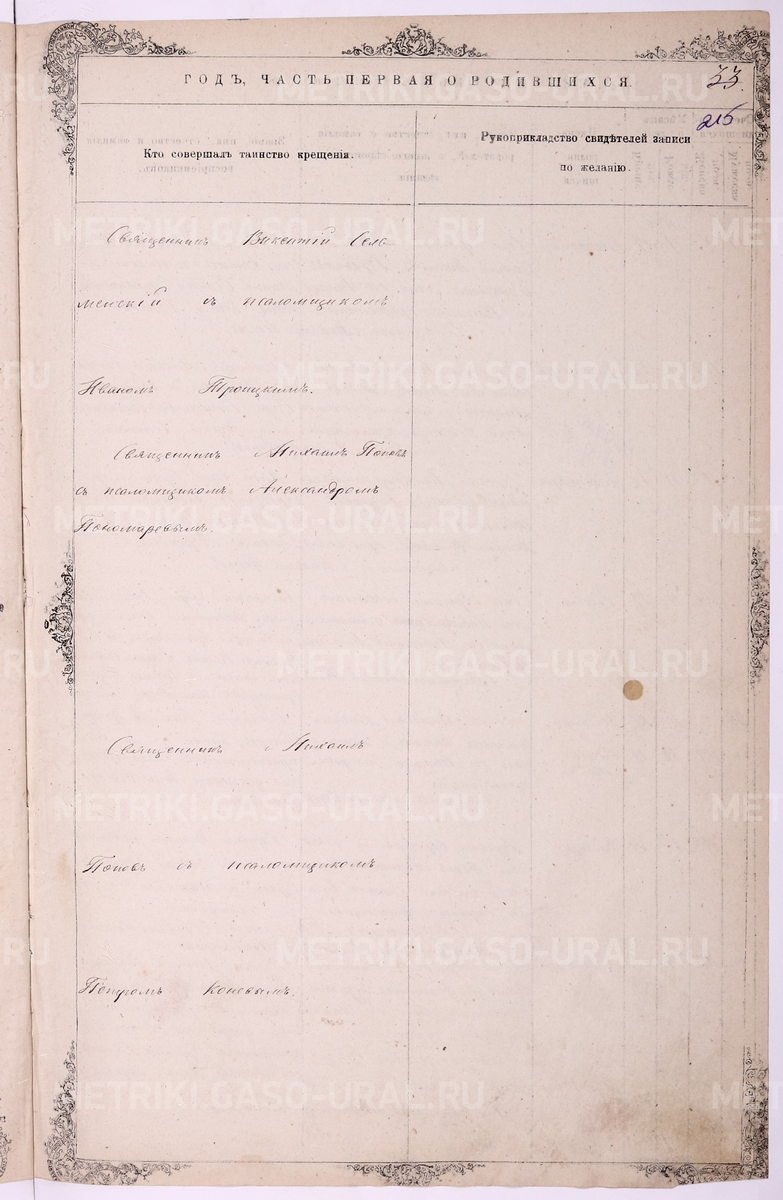 33.
ГОДЪ, ЧАСТЬ ПЕРВАЯ О РОДИВШИХСЯ
215
Кто совершалъ таинство крещенія.
Рукоприкладство свидѣтелей записи
по желанію.
Священникъ Викентій Село
менскій съ псаломщикомъ
Иваномъ Троицкимъ.
Священникъ Михаилъ Поповъ
съ псаломщикомъ Александромъ
Пономаревымъ.
Священникъ Михаилъ
Поповъ съ псаломщикомъ
Петромъ Коневымъ.
METRIKI.GASO-URAL.RU